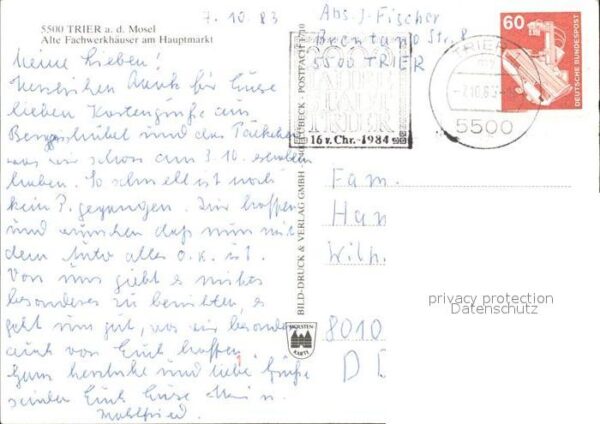 7.10.83
Abs. J. Fischer
Brentano Str. 8
5500 TRIER
5500 TRIER a. d. Mosel
Alte Fachwerkhäuser am Hauptmarkt
Meine Lieben!
Herzlichen Dank für Eure
lieben Kartengrüße aus
und das Päckchen
was wir schon am 3.10. erhalten
haben. So schnell ist noch
kein P. gegangen. Wir hoffen
und wünschen daß nun mit
dem Auto alles o.k. ist.
Von uns giebt es nichts
besonderes zu berichten, es
geht uns gut, was wir besonders
auch von Euch hoffen.
Ganz herzliche und liebe Grüße
senden Euch Eure u.
60
DEUTSCHE BUNDESPOST
TRIER
-7.10.83-
5500
2000
JAHRE
TRIER
16 v. Chr.-1984
BILD-DRUCK & VERLAG GMBH
LÜBECK · POSTFACH
KARTE
Fam.
Han
Wilh.
8010
D
privacy protection
Datenschutz